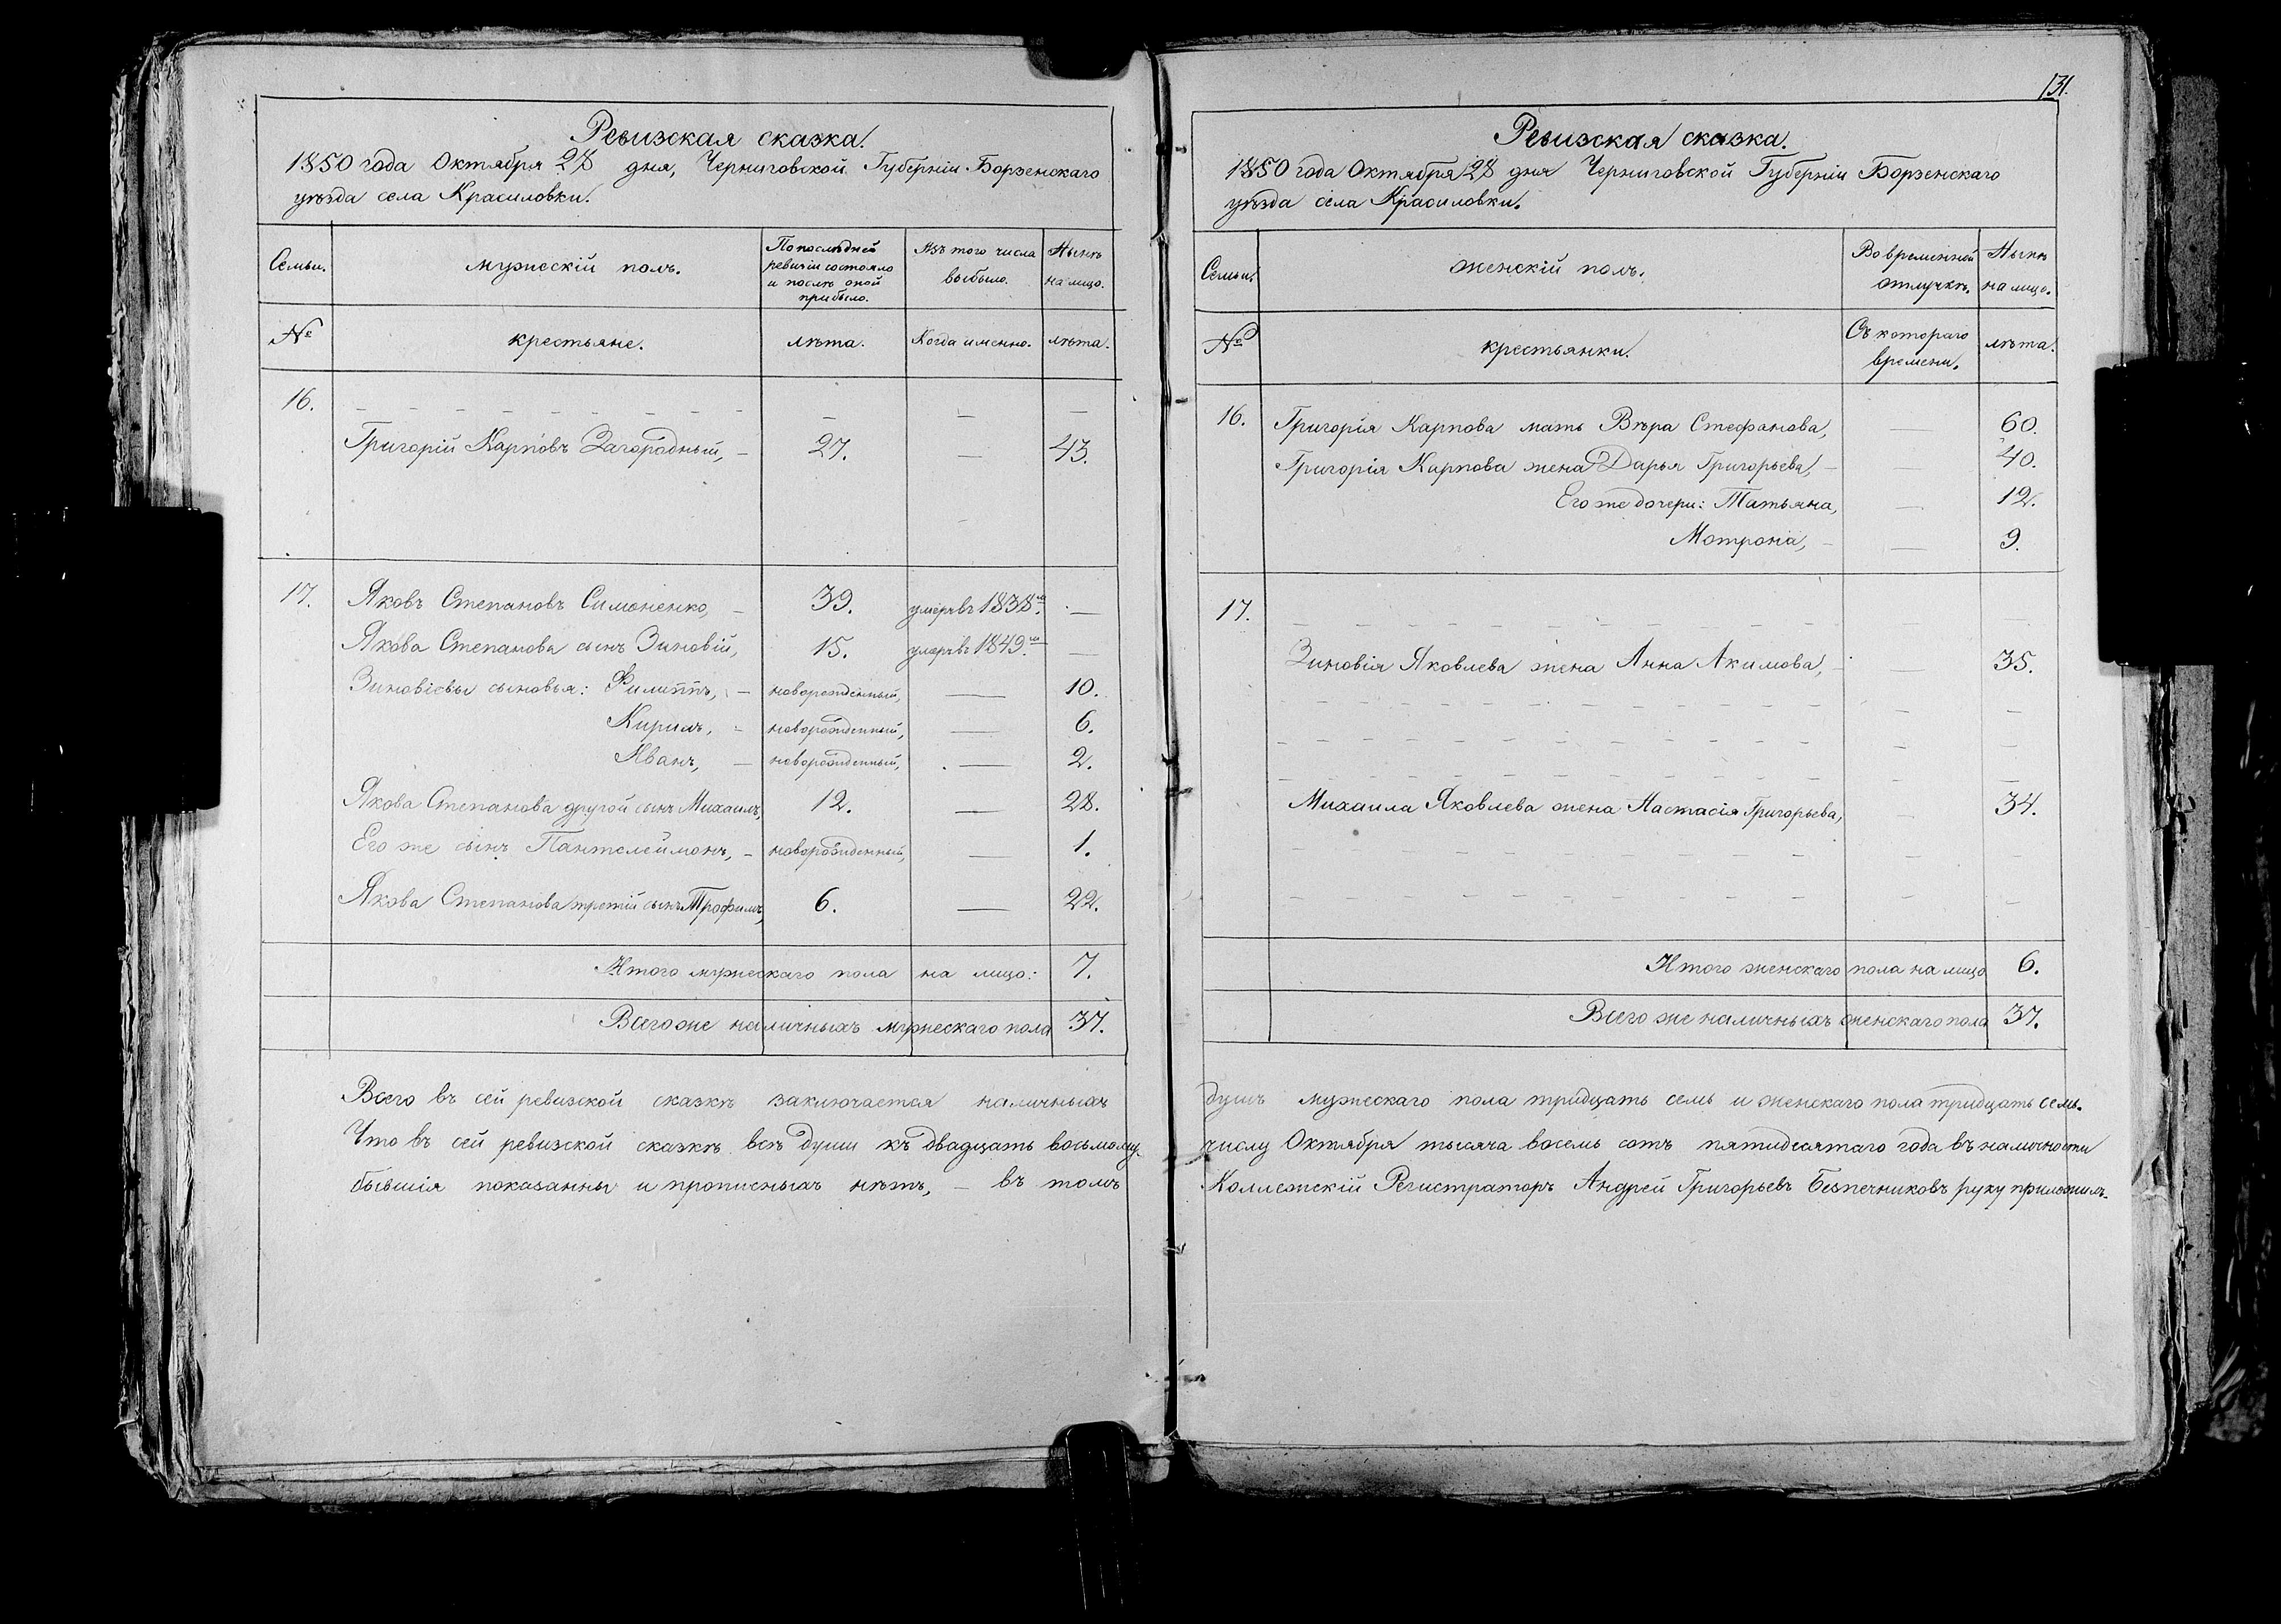 Ревизская сказка.
1850 года Октября 28 дня, Черниговской Губерніи Борзенскаго
уѣзда села Красиловки.
Семьи.
мужескій полъ.
По послѣдней
ревизіи состояло
и послѣ оной
прибыло.
Изъ того числа
выбыло.
Нынѣ
на лицо.
№
крестьяне.
лѣта.
Когда именно.
лѣта.
16. — — —
Григорій Карповъ Загородный, — 27. — 43.
17. Яковъ Степановъ Симоненко, — 39. умеръ въ 1838 го. —
Якова Степанова сынъ Зиновій, 15. умеръ въ 1849 го —
Зиновіевы сыновья: Филиппъ, — новорожденный, — 10.
Кирилъ, — новорожденный, — 6.
Иванъ, — новорожденный, — 2.
Якова Степанова другой сынъ Михаилъ, 12. — 28.
Его же сынъ Пантелеймонъ, — новорожденный, — 1.
Якова Степанова третій сынъ Трофимъ, 6. — 22.
Итого мужескаго пола на лицо: 7.
Всего же наличныхъ мужескаго пола 37.
Всего въ сей ревизской сказкѣ заключается наличныхъ
Что въ сей ревизской сказкѣ всѣ души къ двадцать восьмому
бывшія показанны и прописныхъ нѣтъ, — въ томъ
131.
Ревизская сказка.
1850 года Октября 28 дня Черниговской Губерніи Борзенскаго
уѣзда села Красиловки.
Семьи.
женскій полъ.
Во временной
отлучкѣ.
Нынѣ
на лицо.
№
крестьянки.
Съ котораго
времени.
лѣта.
16. Григорія Карпова мать Вѣра Стефанова, — 60.
Григорія Карпова жена Дарья Григорьева, — — 40.
Его же дочери: Татьяна, — 12.
Мотрона, — — 9.
17. — — —
Зиновія Яковлева жена Анна Акимова, — — 35.
— — —
— — —
— — —
Михаила Яковлева жена Настасія Григорьева, — 34.
— — —
— — —
Итого женскаго пола на лицо 6.
Всего же наличныхъ женскаго пола 37.
душъ мужескаго пола тридцать семь и женскаго пола тридцать семь.
числу Октября тысяча восемь сотъ пятидесятаго года въ наличности
Коллежскій Регистраторъ Андрей Григорьевъ Безпечниковъ руку приложилъ.